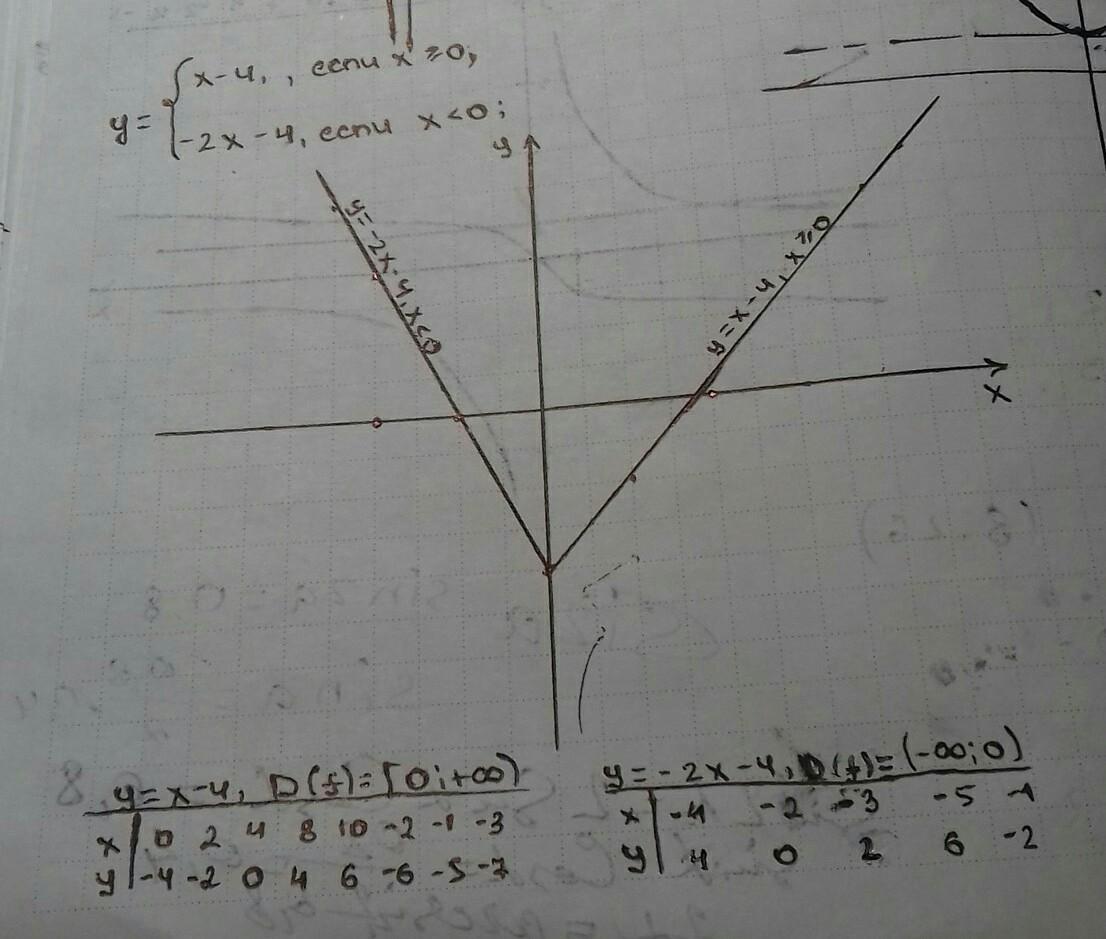 y = { x-4, , если x ≥ 0;
-2x - 4, если x < 0;
y
y = -2x-4, x<0
y = x-4, x≥0
x
y = x-4, D(f) = [0; +∞)
x | 0 2 4 8 10 -2 -1 -3
y | -4 -2 0 4 6 -6 -5 -7
y = -2x-4, D(f) = (-∞; 0)
x | -4 -2 -3 -5 -1
y | 4 0 2 6 -2